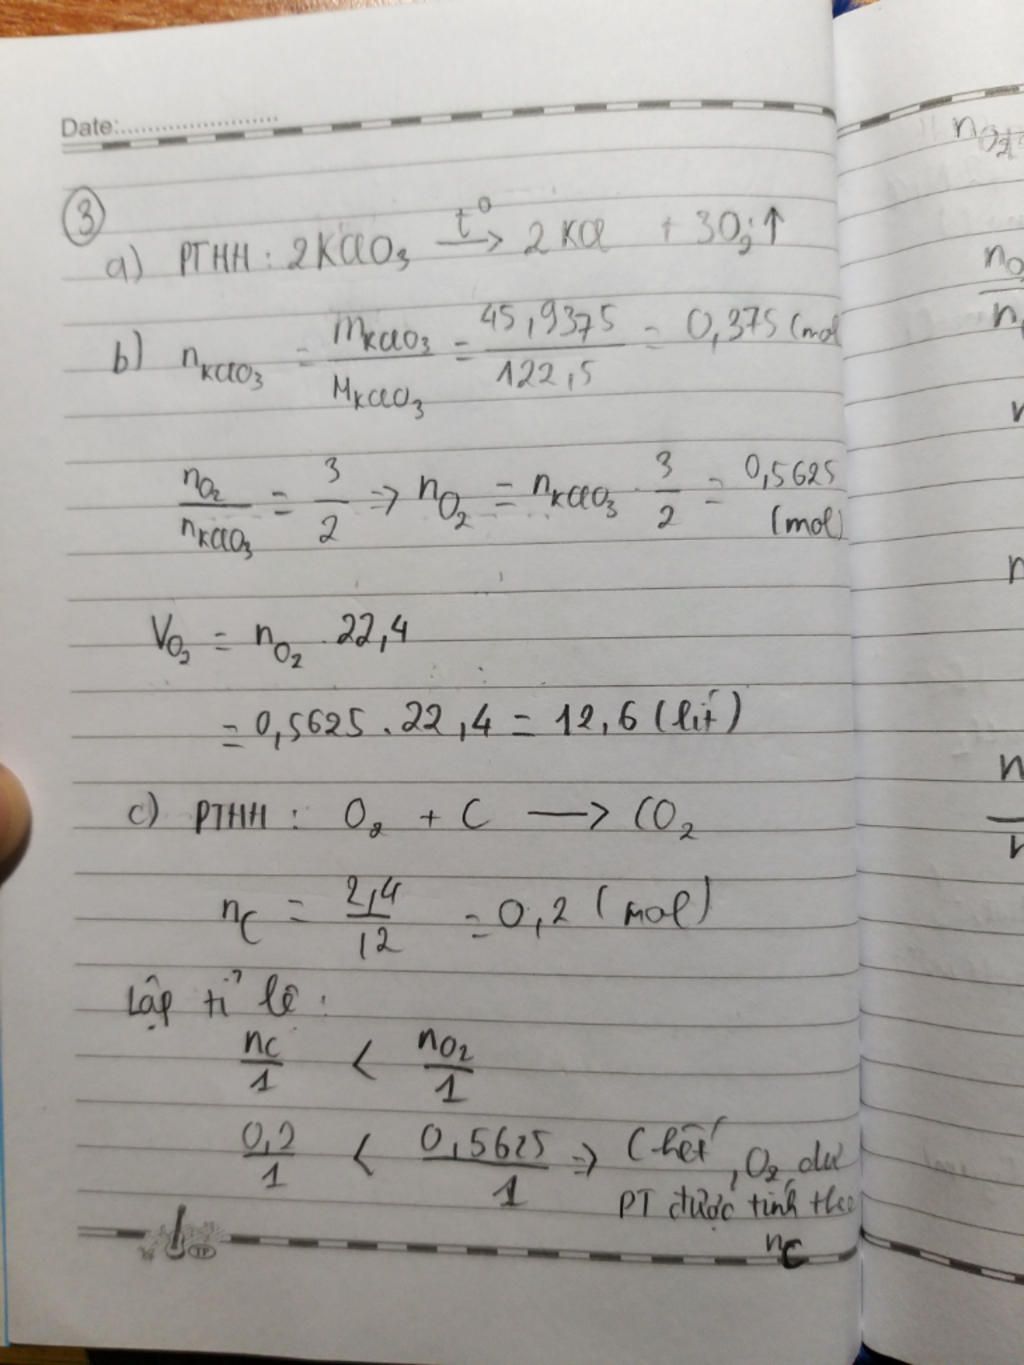 Date:
3
a) PTHH : 2KClO3 t° → 2KCl + 3O2 ↑
b) nKClO3 = mKClO3 / MKClO3 = 45,9375 / 122,5 = 0,375 (mol
nO2 / nKClO3 = 3 / 2 => nO2 = nKClO3 . 3 / 2 = 0,5625 (mol)
VO2 = nO2 . 22,4
= 0,5625 . 22,4 = 12,6 (lít)
c) PTHH : O2 + C → CO2
nC = 2,4 / 12 = 0,2 (mol)
Lập tỉ lệ :
nC / 1 < nO2 / 1
0,2 / 1 < 0,5625 / 1 => C hết, O2 dư
PT được tính theo
nC
TP
nO2
nO
n
n
n
n